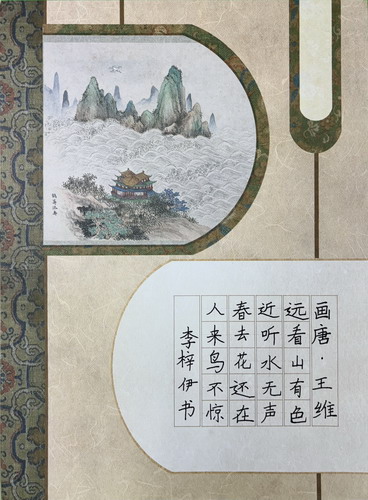 画唐·王维
远看山有色
近听水无声
春去花还在
人来鸟不惊
李梓伊书